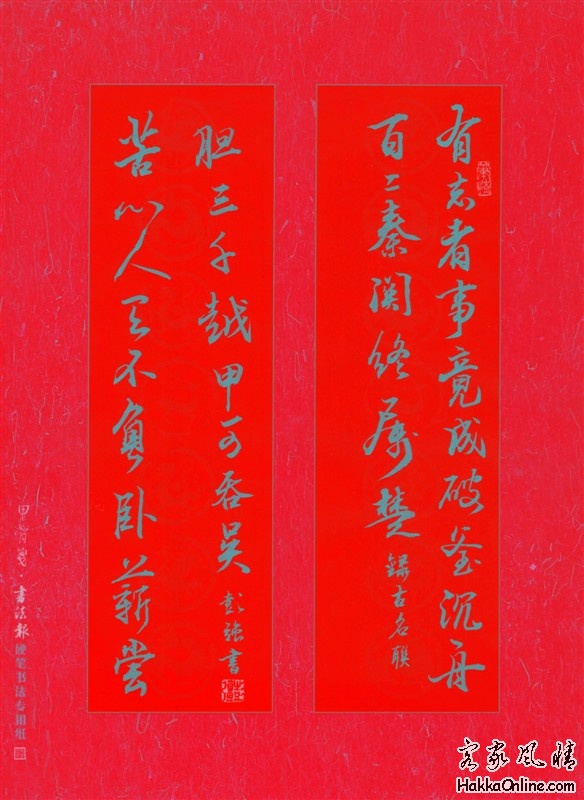 有志者事竟成破釜沉舟
百二秦関终属楚
録古名联
苦心人天不負卧薪嘗
胆三千越甲可吞吴
彭強書
書法報 硬笔书法专用纸
客家風情
HakkaOnline.com